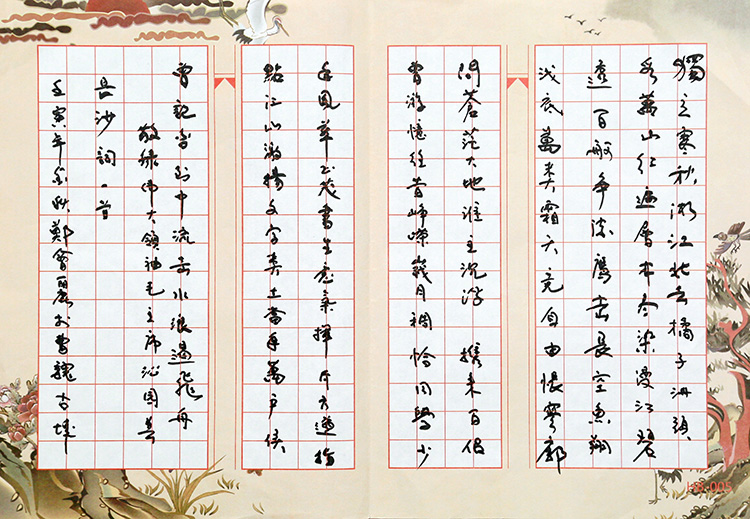 獨立寒秋湘江北去橘子洲頭
看萬山红遍層林尽染漫江碧
透百舸争流鷹击長空魚翔
浅底萬类霜天竞自由悵寥廓
問蒼茫大地誰主沉浮 攜来百侣
曾游憶往昔峥嶸歲月稠恰同學少
年風華正茂書生意氣揮斥方遒指
點江山激揚文字粪土當年萬户侯
曾記否到中流击水浪遏飛舟
敬録偉大領袖毛主席沁園春
長沙詞一首
壬寅年金秋鄭會麗於曹魏古城
HB-005